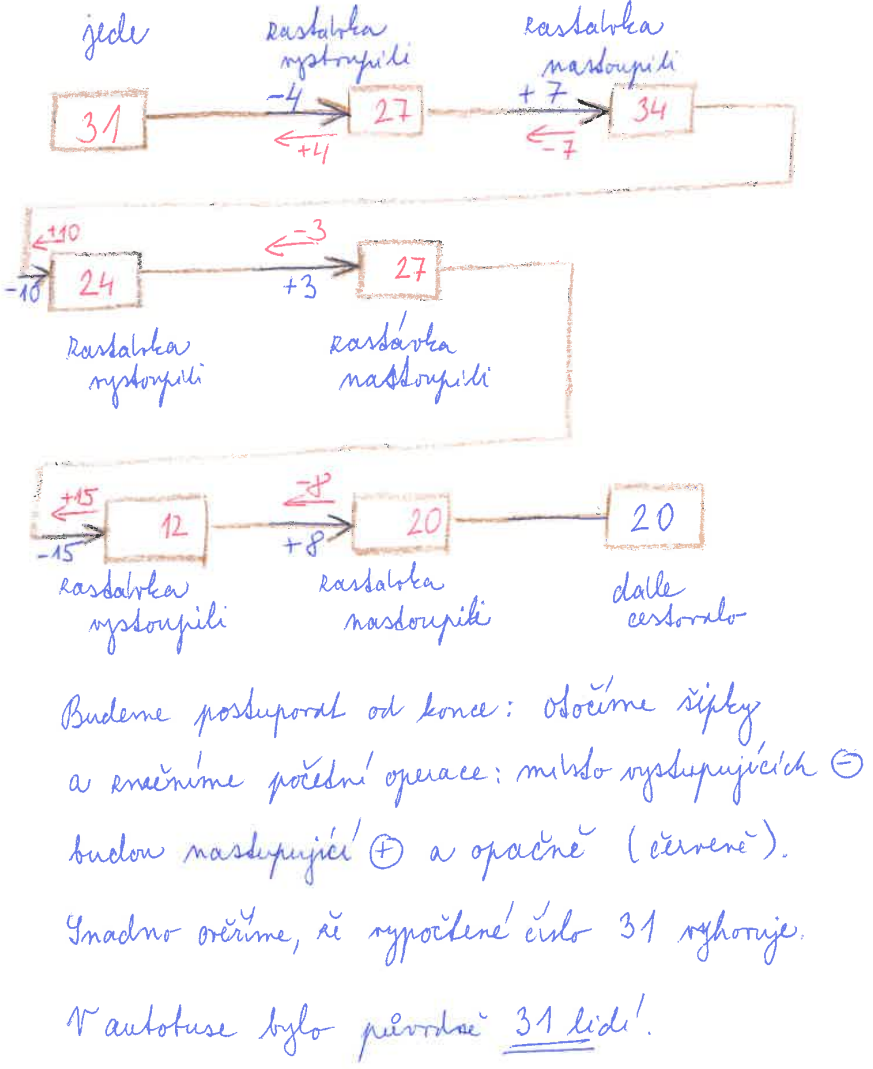 jede
zastávka
vystoupili
zastávka
nastoupili
31
-4
+4
27
+7
-7
34
+10
-10
24
-3
+3
27
zastávka
vystoupili
zastávka
nastoupili
+15
-15
12
-8
+8
20
20
zastávka
vystoupili
zastávka
nastoupili
dále
cestovalo
Budeme postupovat od konce: otočíme šipky
a změníme početní operace: místo vystupujících ⊖
budou nastupující ⊕ a opačně (červeně).
Snadno ověříme, že vypočtené číslo 31 vyhovuje.
V autobuse bylo původně 31 lidí.